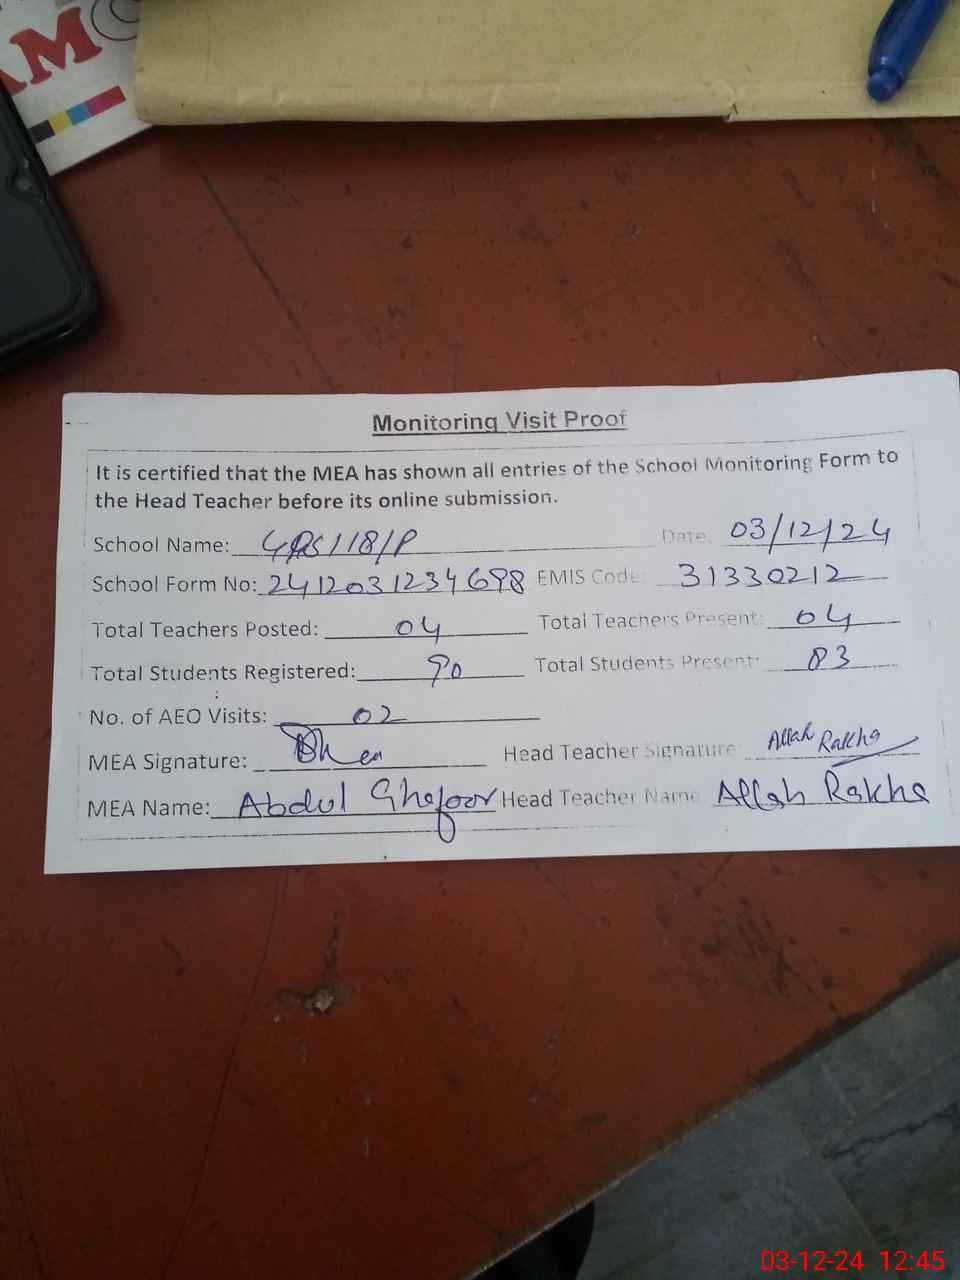 AMC
Monitoring Visit Proof
It is certified that the MEA has shown all entries of the School Monitoring Form to
the Head Teacher before its online submission.
School Name: GPS 118/P Date: 03/12/24
School Form No: 2412031234698 EMIS Code: 31330212
Total Teachers Posted: 04 Total Teachers Present: 04
Total Students Registered: 90 Total Students Present: 83
No. of AEO Visits: 02
MEA Signature: Head Teacher Signature: Allah Rakha
MEA Name: Abdul Ghafoor Head Teacher Name Allah Rakha
03-12-24 12:45